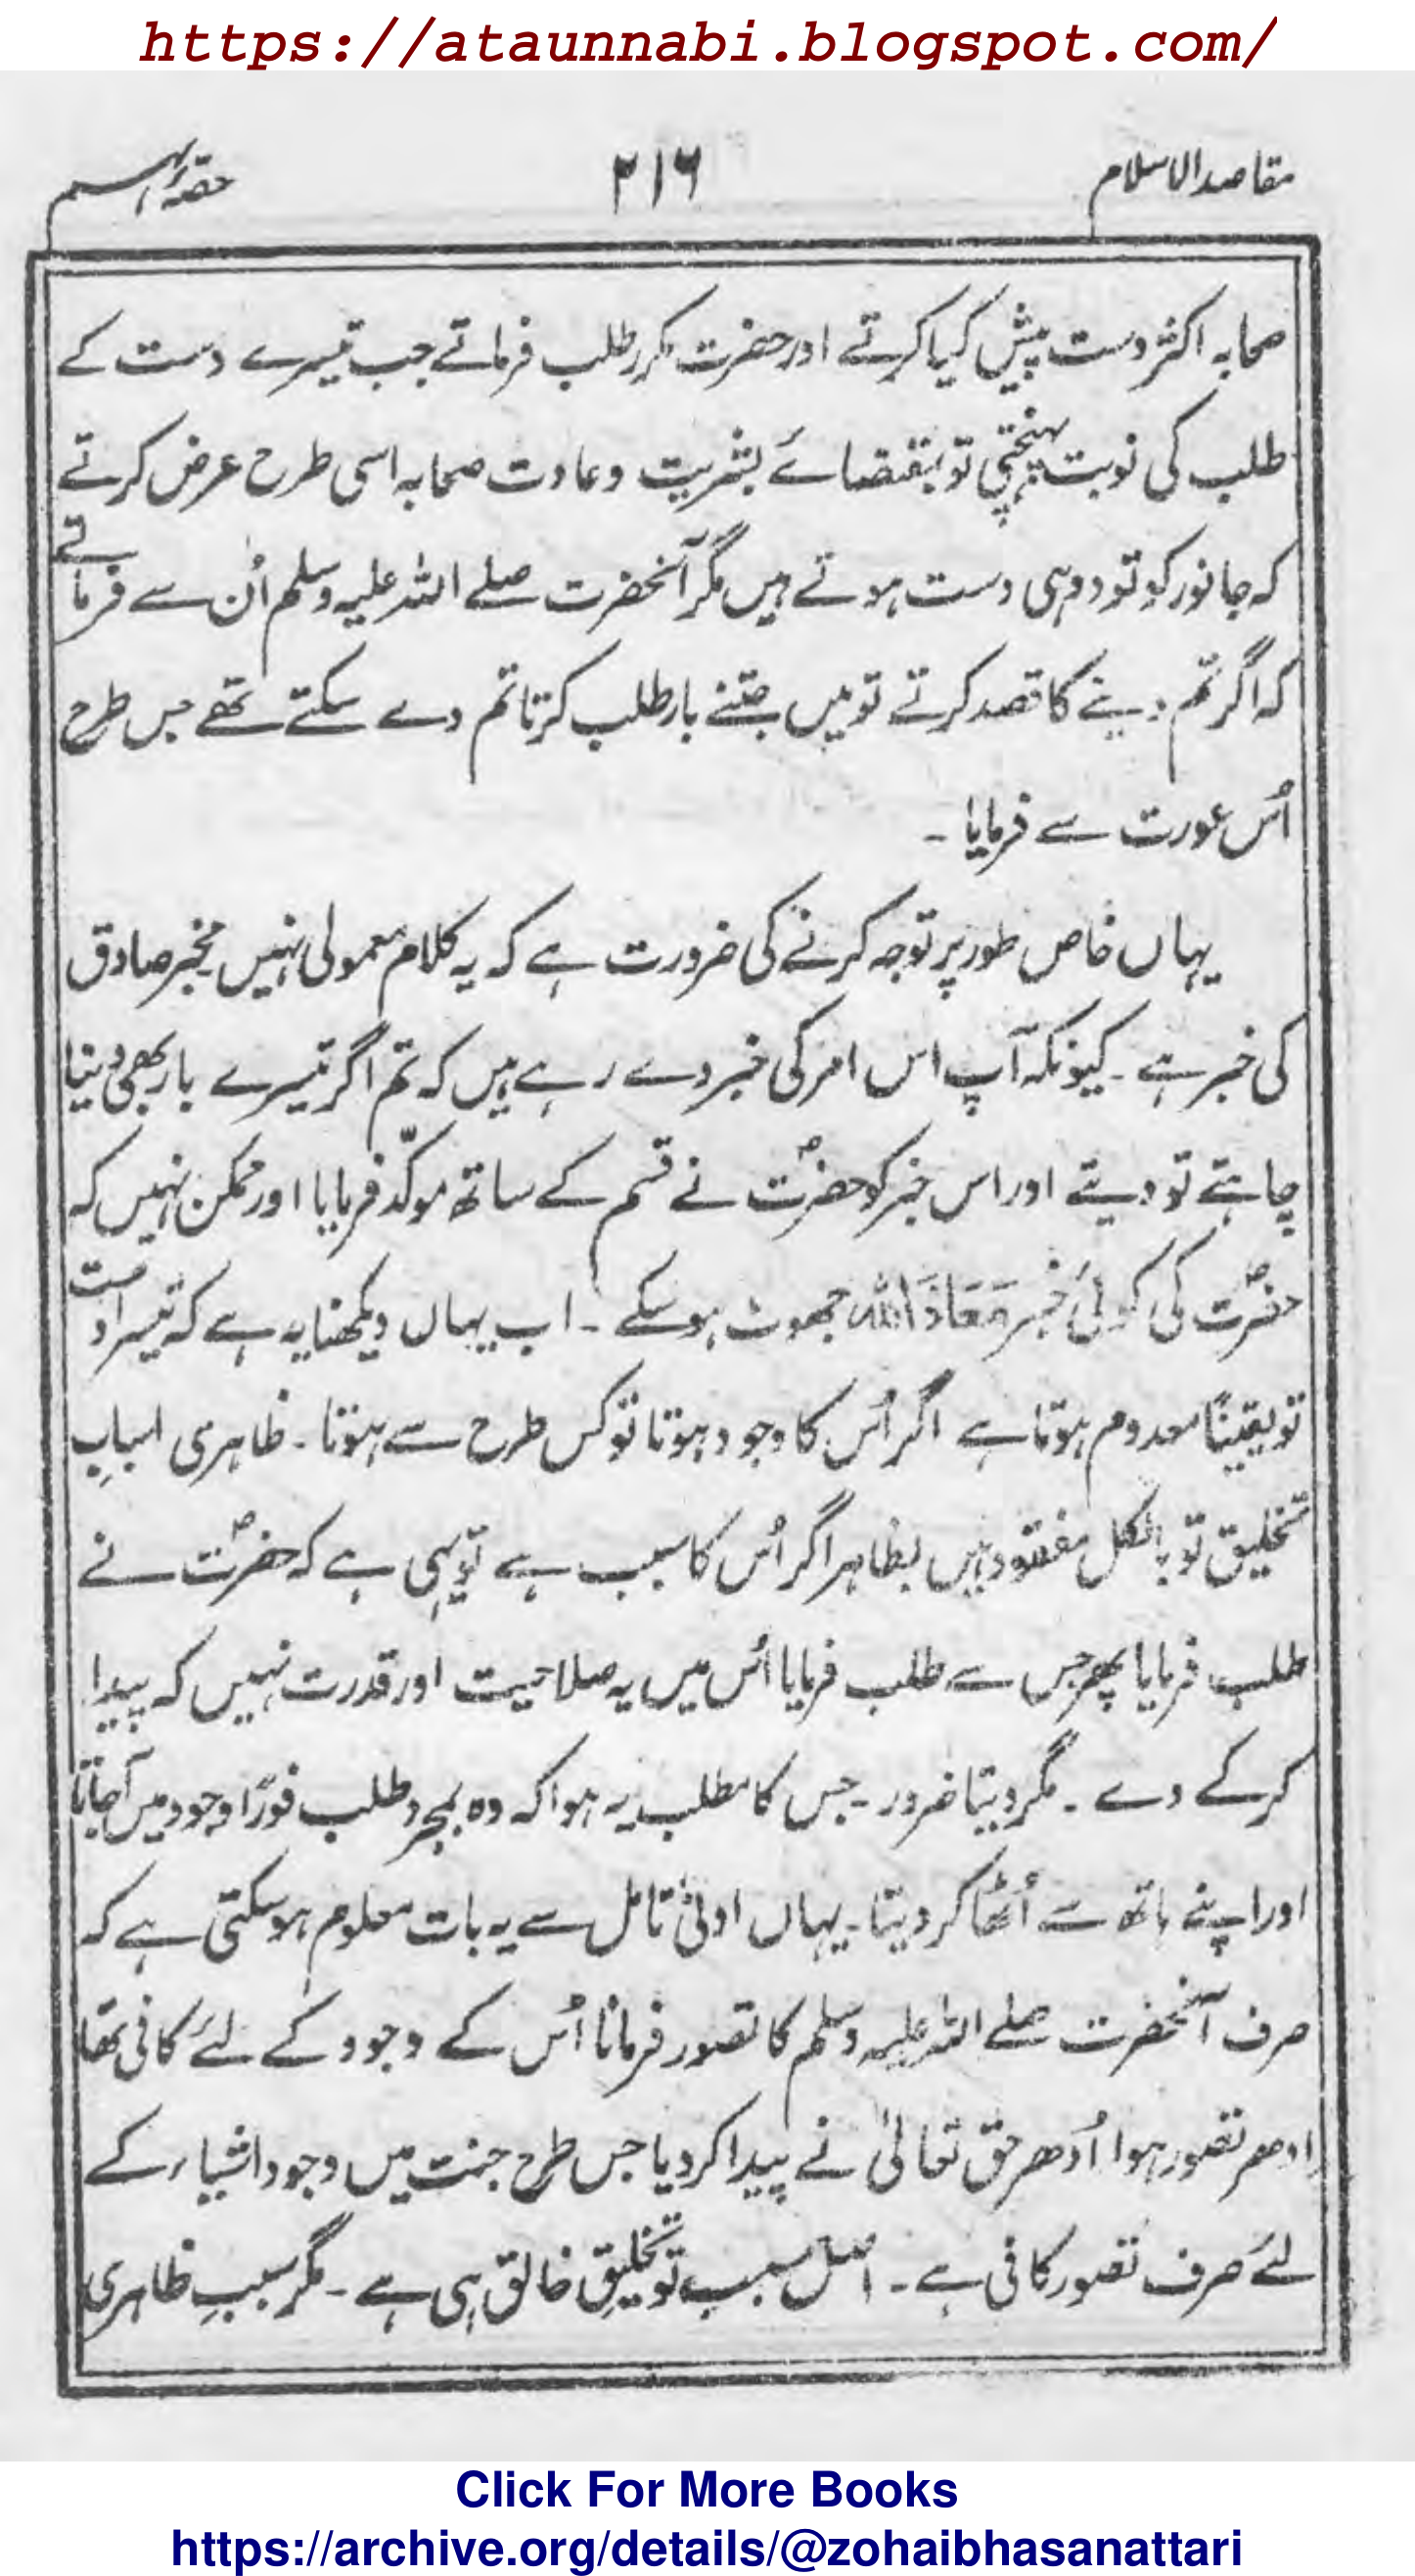 https://ataunnabi.blogspot.com/
مقاصد الاسلام
۲۱۶
حصّہ
صحابہ اکثر دست پیش کیا کرتے اور حضرت مکرر طلب فرماتے جب تیسرے دست کے
طلب کی نوبت پہنچتی تو بمقتضائے بشریت و عادت صحابہ اسی طرح عرض کرتے
کہ جانور کو تو دو ہی دست ہوتے ہیں مگر آنحضرت صلے اللہ علیہ وسلم اُن سے فرماتے
کہ اگر تم دینے کا قصد کرتے تو میں جتنے بار طلب کرتا تم دے سکتے تھے جس طرح
اُس عورت سے فرمایا ۔
یہاں خاص طور پر توجہ کرنے کی ضرورت ہے کہ یہ کلام معمولی نہیں مخبر صادق
کی خبر ہے ۔ کیونکہ آپ اس امر کی خبر دے رہے ہیں کہ تم اگر تیسرے بار بھی دینا
چاہتے تو دیتے اور اس خبر کو حضرتؐ نے قسم کے ساتھ موکّد فرمایا اور ممکن نہیں کہ
حضرتؐ کی کوئی خبر مَعَاذَ اللہ جھوٹ ہو سکے ۔ اب یہاں دیکھنا یہ ہے کہ تیسرا دست
تو یقینًا معدوم ہوتا ہے اگر اُس کا وجود ہوتا تو کس طرح سے ہوتا ۔ ظاہری اسبابِ
تخلیق تو بالکل مفقود ہیں بظاہر اگر اُس کا سبب ہے تو یہی ہے کہ حضرتؐ نے
طلب فرمایا پھر جس سے طلب فرمایا اُس میں یہ صلاحیت اور قدرت نہیں کہ پیدا
کر کے دے ۔ مگر دیتا ضرور ۔ جس کا مطلب یہ ہوا کہ وہ بمجرد طلب فورًا وجود میں آجاتا
اور اپنے ہاتھ سے اُٹھا کر دیتا ۔ یہاں ادنیٰ تامل سے یہ بات معلوم ہو سکتی ہے کہ
صرف آنحضرت صلے اللہ علیہ وسلم کا تصور فرمانا اُس کے وجود کے لئے کافی تھا
ادھر تصور ہوا اُدھر حق تعالیٰ نے پیدا کر دیا جس طرح جنت میں وجود اشیاء کے
لئے صرف تصور کافی ہے ۔ اصل سبب تو تخلیقِ خالق ہی ہے ۔ مگر سببِ ظاہری
Click For More Books
https://archive.org/details/@zohaibhasanattari